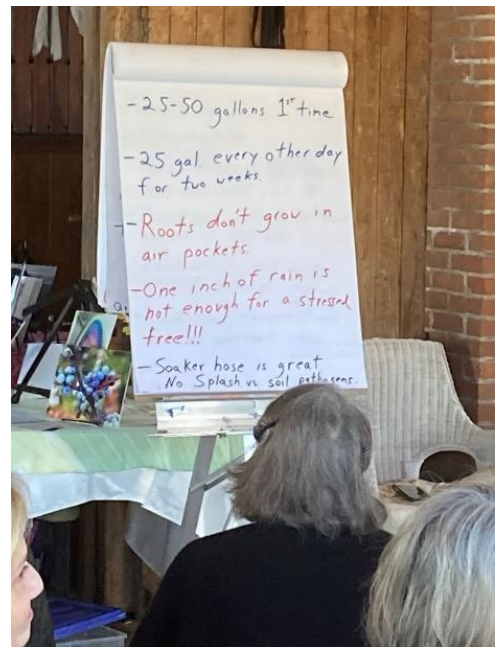 - 25-50 gallons 1st time
- 25 gal every other day
for two weeks.
- Roots don't grow in
air pockets.
- One inch of rain is
not enough for a stressed
tree!!!
- Soaker hose is great
No Splash vs soil pathogens.